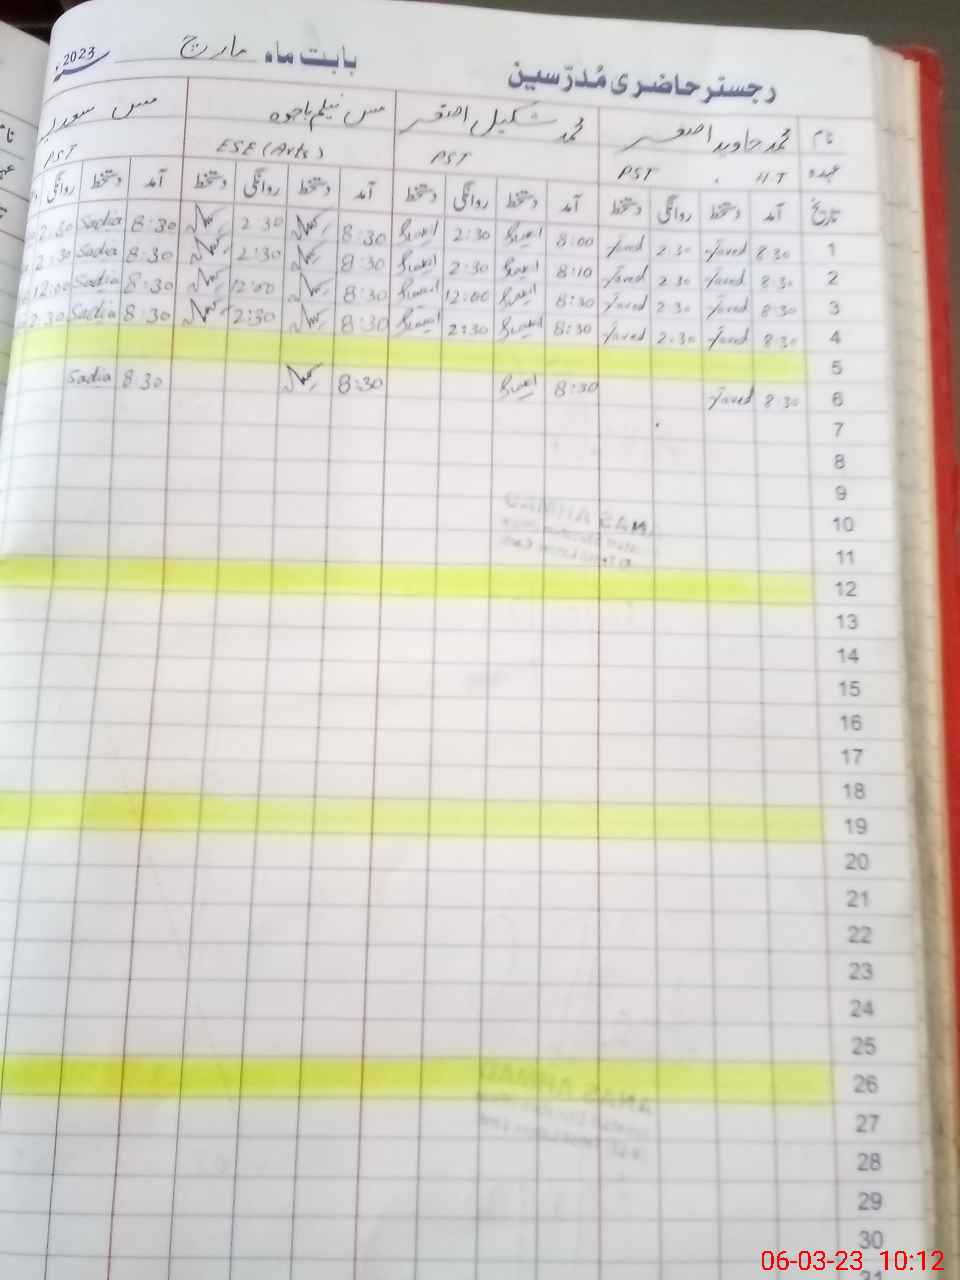 رجسٹر حاضری مُدرّسین بابت ماہ مارچ 2023ء
نام محمد جاوید اصغر محمد شکیل اصغر مس نیلم باجوہ مس سعدیہ
عہدہ H.T PST PST ESE (Arts) PST
تاریخ آمد دستخط روانگی دستخط آمد دستخط روانگی دستخط آمد دستخط روانگی دستخط آمد دستخط روانگی
1 8:30 Javed 2:30 Javed 8:00 2:30 8:30 2:30 8:30 Sadia 2:30
2 8:30 Javed 2:30 Javed 8:10 2:30 8:30 2:30 8:30 Sadia 2:30
3 8:30 Javed 2:30 Javed 8:30 12:00 8:30 12:00 8:30 Sadia 12:00
4 8:30 Javed 2:30 Javed 8:30 2:30 8:30 2:30 8:30 Sadia 2:30
5
6 8:30 Javed 8:30 8:30 8:30 Sadia
7
8
9
10
11
12
13
14
15
16
17
18
19
20
21
22
23
24
25
26
27
28
29
30
31
06-03-23 10:12